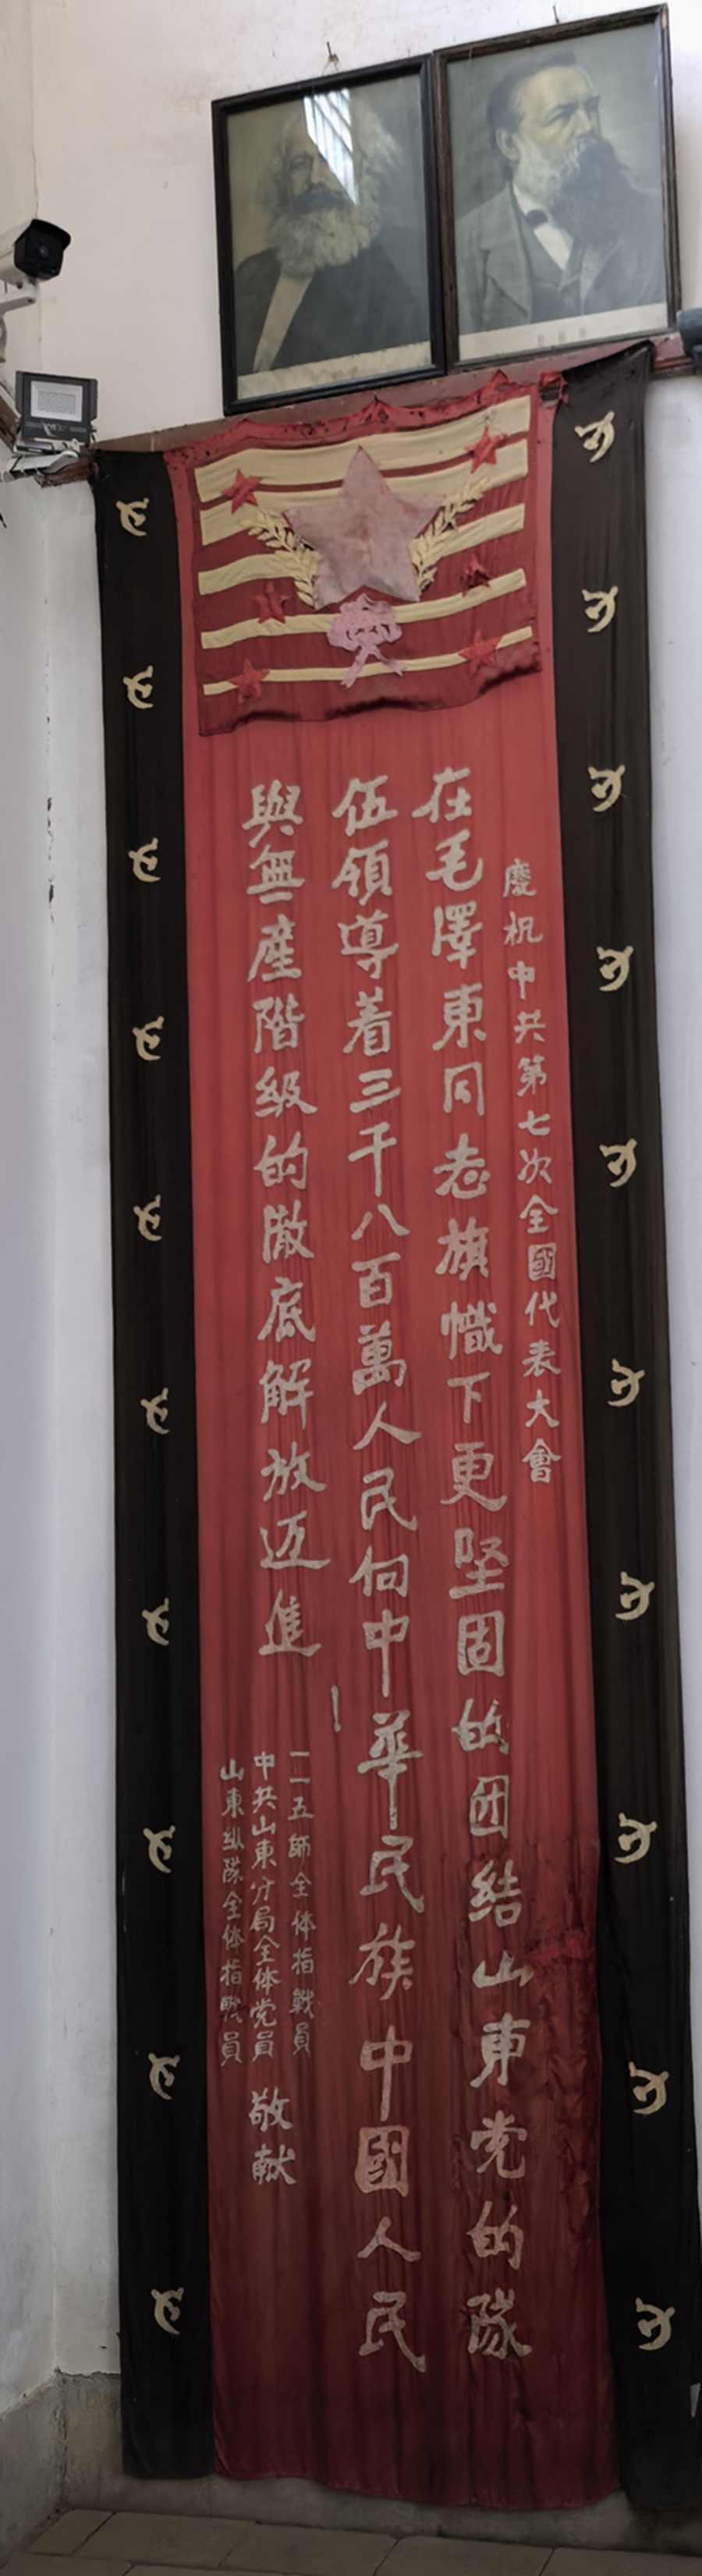 慶祝中共第七次全國代表大會
在毛澤東同志旗幟下更坚固的团结山東党的隊
伍領導着三千八百萬人民向中華民族中國人民
與無產階級的澈底解放迈進！
一一五師全体指戰員
中共山東分局全体党員
山東纵隊全体指戰員
敬献